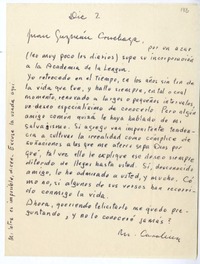 Dic 2
Juan Guzmán Cruchaga.
por un azar
(leo muy poco los diarios) supe su incorporación
a la Academia de la Lengua.
Yo retrocedo en el tiempo, en los años sin fin de
la vida que tuve, y hallo siempre, en tal o cual
momento, renovado a largos o pequeños intervalos,
un deseo especialísimo de conocerlo. Pero algún
amigo común quizá le haya hablado de mi
salvajismo. Si agrego una impertinente tendencia
a cultivar la irrealidad como cómplice de
soluciones a las que me aferro sepa Dios por
qué, tal vez ello le explique ese deseo siempre
diferido de llegar hasta Ud. Sí, desconocido
amigo, lo he admirado a usted, y mucho. Cómo
no, si algunos de sus versos han recorrido
conmigo la vida.
Ahora, queriendo felicitarlo me quedo
preguntando, y no lo conoceré jamás?